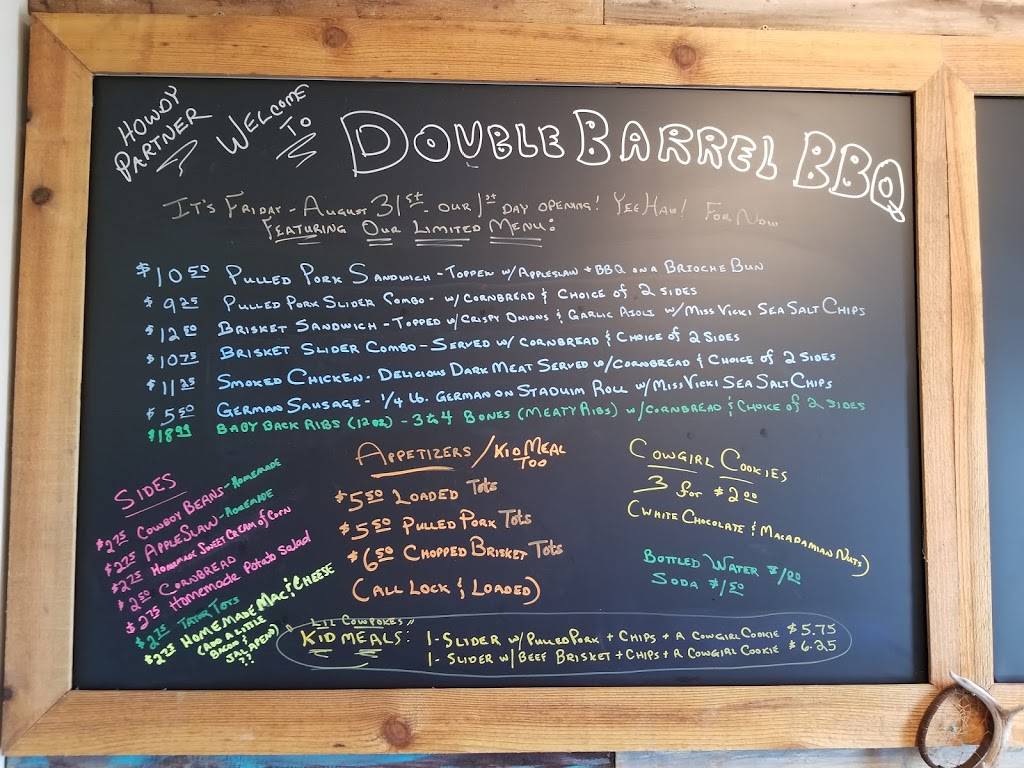 HOWDY PARTNER
WELCOME TO
DOUBLE BARREL BBQ
IT'S FRIDAY - AUGUST 31st - OUR 1st DAY OPENING! YEE HAW! FOR NOW
FEATURING OUR LIMITED MENU:
$10 50 PULLED PORK SANDWICH - TOPPEN W/ APPLESLAW + BBQ ON A BRIOCHE BUN
$9 25 PULLED PORK SLIDER COMBO - W/ CORNBREAD & CHOICE OF 2 SIDES
$12 00 BRISKET SANDWICH - TOPPED W/ CRISPY ONIONS & GARLIC AIOLI W/ MISS VICKI SEA SALT CHIPS
$10 75 BRISKET SLIDER COMBO - SERVED W/ CORNBREAD & CHOICE OF 2 SIDES
$11 25 SMOKED CHICKEN - DELICIOUS DARK MEAT SERVED W/ CORNBREAD & CHOICE OF 2 SIDES
$5 50 GERMAN SAUSAGE - 1/4 LB. GERMAN ON STADIUM ROLL W/ MISS VICKI SEA SALT CHIPS
$18 99 BABY BACK RIBS (12 OZ) - 3 to 4 BONES (MEATY RIBS) W/ CORNBREAD & CHOICE OF 2 SIDES
SIDES
$2 75 COWBOY BEANS - HOMEMADE
$2 75 APPLESLAW - HOMEMADE
$2 75 HOMEMADE SWEET CREAM OF CORN
$2 50 CORNBREAD
$2 75 Homemade Potato Salad
$2 75 TATOR TOTS
$2 75 HOMEMADE MAC & CHEESE
(ADD A LITTLE
BACON &
JALAPENO)
??
APPETIZERS / KID MEAL
TOO
$5 50 LOADED Tots
$5 50 PULLED PORK Tots
$6 50 CHOPPED BRISKET Tots
(ALL LOCK & LOADED)
COWGIRL COOKIES
3 for $2 00
(WHITE CHOCOLATE & MACADAMIAN NUTS)
BOTTLED WATER $1 00
SODA $1 50
"LIL COWPOKES"
KID MEALS: 1 - SLIDER W/ PULLED PORK + CHIPS + A COWGIRL COOKIE $5.75
1 - SLIDER W/ BEEF BRISKET + CHIPS + A COWGIRL COOKIE $6.25